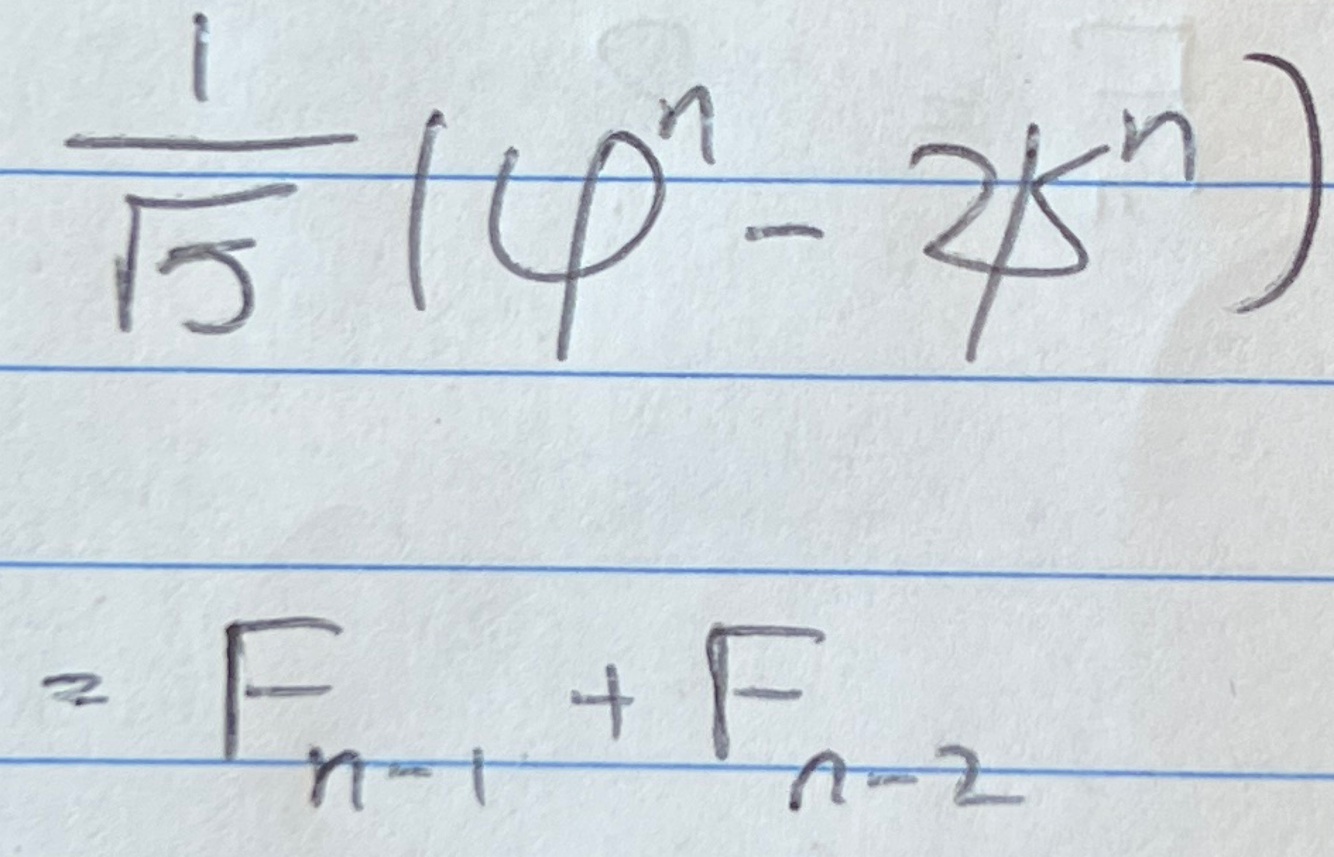 1/√5 (φⁿ - ψⁿ)
= Fₙ₋₁ + Fₙ₋₂